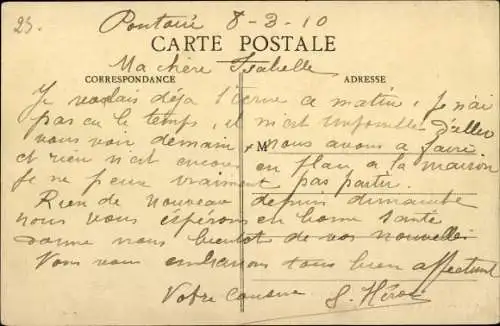 23.
Pontoise 8-3-10
CARTE POSTALE
Ma chère Isabelle
CORRESPONDANCE
ADRESSE
Je voulais déja t'écrire ce matin, je n'ai
pas eu le temps, il m'est impossible d'aller
vous voir demain M nous avons a faire
et rien n'est encore en plan a la maison
Je ne peux vraiment pas partir.
Rien de nouveau depuis dimanche
nous vous espérons en bonne santé
donne nous bientot de vos nouvelles
Nous vous embrassons tous bien affectueut
Votre cousine